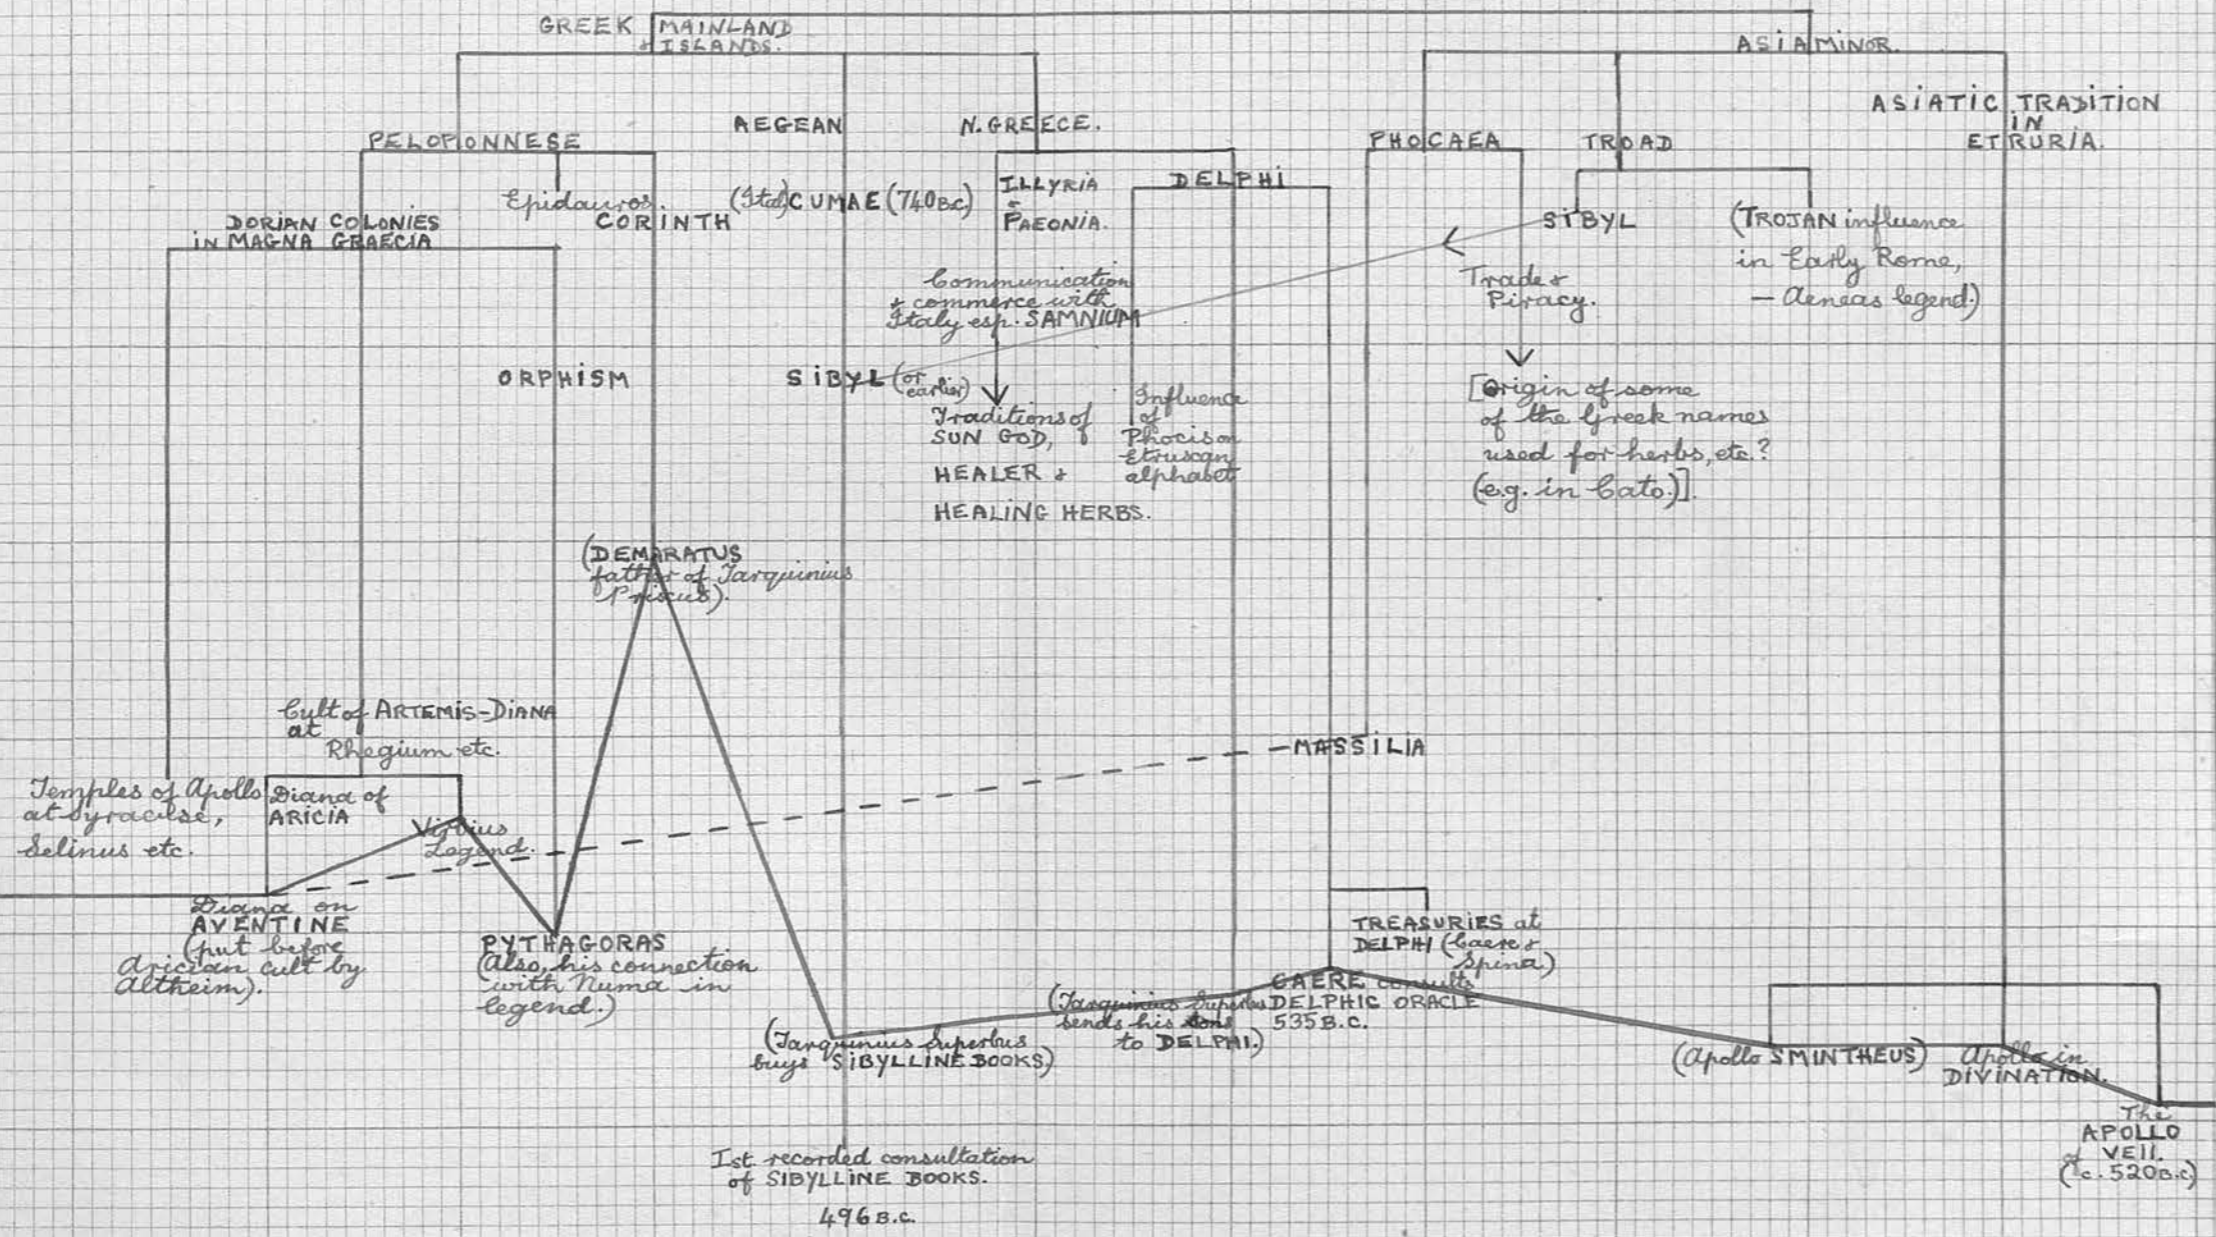 GREEK MAINLAND
& ISLANDS.
ASIA MINOR.
ASIATIC TRADITION
IN
ETRURIA.
AEGEAN
N. GREECE.
PELOPONNESE
PHOCAEA
TROAD
Epidauros.
CORINTH
(Ital) CUMAE (740 B.C.)
ILLYRIA
+
PAEONIA.
DELPHI
DORIAN COLONIES
in MAGNA GRAECIA
SIBYL
(TROJAN influence
in Early Rome,
— Aeneas legend.)
Communication
+ commerce with
Italy esp. SAMNIUM
Trade +
Piracy.
ORPHISM
SIBYL (or
earlier)
Traditions of
SUN GOD,
HEALER &
HEALING HERBS.
Influence
of
Phocis on
Etruscan
alphabet
[Origin of some
of the Greek names
used for herbs, etc.?
(e.g. in Cato.)].
(DEMARATUS
father of Tarquinius
Priscus).
Cult of ARTEMIS-DIANA
at
Rhegium etc.
MASSILIA
Temples of Apollo
at Syracuse,
Selinus etc.
Diana of
ARICIA
Virbius
Legend.
Diana on
AVENTINE
(put before
Arician cult by
Altheim).
PYTHAGORAS
(Also, his connection
with Numa in
legend.)
TREASURIES at
DELPHI (Caere &
Spina)
CAERE consults
DELPHIC ORACLE
535 B.C.
(Tarquinius Superbus
sends his sons
to DELPHI.)
(Tarquinius Superbus
buys SIBYLLINE BOOKS)
(Apollo SMINTHEUS)
Apollo in
DIVINATION.
The
APOLLO
of VEII.
(c. 520 B.C)
Ist recorded consultation
of SIBYLLINE BOOKS.
496 B.C.